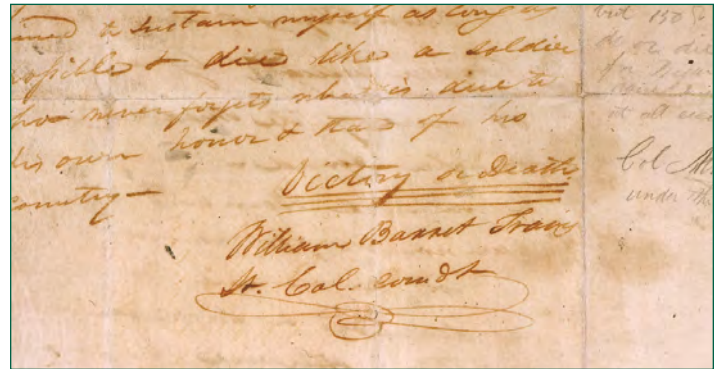 ined to sustain myself as long as
possible & die like a soldier
who never forgets what is due to
his own honor & that of his
country—
Victory or Death
William Barret Travis
Lt. Col. comdt
but 150
or die
for
at all
Col M
under th